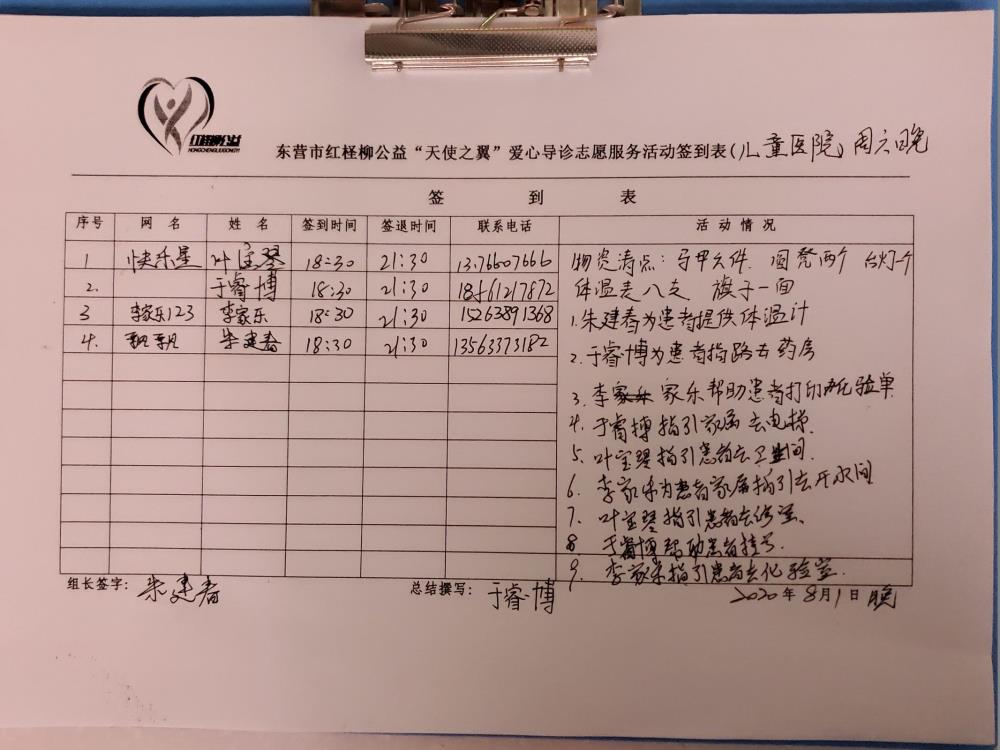 红柽柳公益
HONGCHENGLIUGONGYI
东营市红柽柳公益“天使之翼”爱心导诊志愿服务活动签到表(儿童医院)周六晚
签 到 表
序号 网 名 姓 名 签到时间 签退时间 联系电话 活 动 情 况
1 快乐星 叶宝琴 18:30 21:30 13176607666
2. 于睿博 18:30 21:30 18561217872
3 李家乐123 李家乐 18:30 21:30 15263891368
4. 飘飘 朱建春 18:30 21:30 13563373182
物资清点:马甲六件 圆凳两个 台灯一个
体温表八支 旗子一面
1.朱建春为患者提供体温计
2.于睿博为患者指路去药房
3.李家乐帮助患者打印化验单
4.于睿博指引家属去电梯.
5.叶宝琴指引患者去卫生间.
6.李家乐为患者家属指引去开水间
7.叶宝琴指引患者去
8 于睿博帮助患者挂号.
9.李家乐指引患者去化验室.
组长签字:朱建春 总结撰写:于睿博 2020年8月1日晚